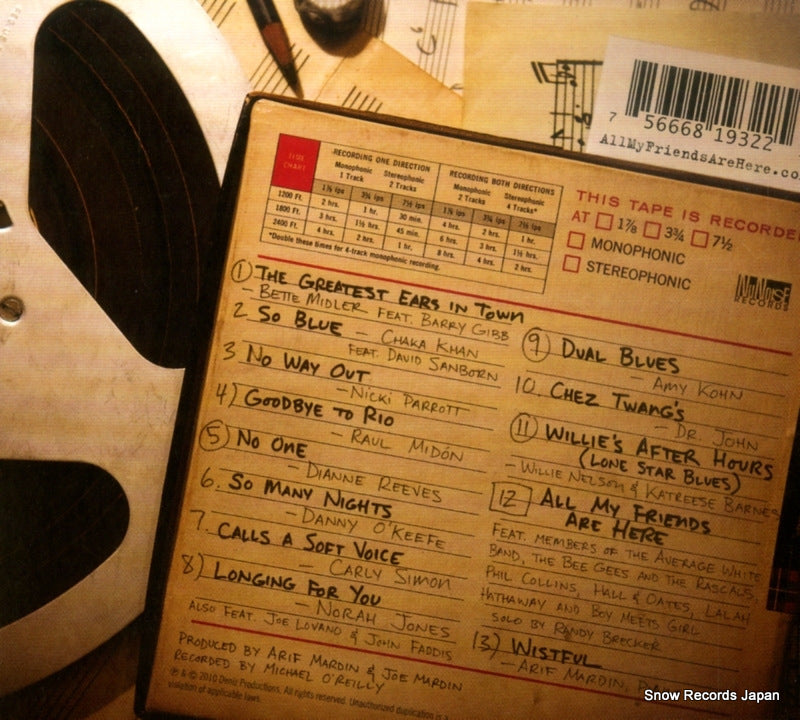 7 56668 19322
AllMyFriendsAreHere.co
TIME
CHART
RECORDING ONE DIRECTION
RECORDING BOTH DIRECTIONS
Monophonic 1 Track
Stereophonic 2 Tracks
Monophonic 2 Tracks
Stereophonic 4 Tracks*
1⅞ ips 3¾ ips 7½ ips 1⅞ ips 3¾ ips 7½ ips
1200 Ft. 2 hrs. 1 hr. 30 min. 4 hrs. 2 hrs. 1 hr.
1800 Ft. 3 hrs. 1½ hrs. 45 min. 6 hrs. 3 hrs. 1½ hrs.
2400 Ft. 4 hrs. 2 hrs. 1 hr. 8 hrs. 4 hrs. 2 hrs.
*Double these times for 4-track monophonic recording.
THIS TAPE IS RECORDE
AT 1⅞ 3¾ 7½
MONOPHONIC
STEREOPHONIC
NuNoise
RECORDS
1) THE GREATEST EARS IN TOWN
- BETTE MIDLER FEAT. BARRY GIBB
2 SO BLUE - CHAKA KHAN
FEAT. DAVID SANBORN
3 NO WAY OUT
- NICKI PARROTT
4) GOODBYE TO RIO
- RAUL MIDÓN
5) NO ONE
- DIANNE REEVES
6. SO MANY NIGHTS
- DANNY O'KEEFE
7. CALLS A SOFT VOICE
- CARLY SIMON
8) LONGING FOR YOU
- NORAH JONES
ALSO FEAT. JOE LOVANO & JOHN FADDIS
9) DUAL BLUES
- AMY KOHN
10. CHEZ TWANG'S
- DR. JOHN
11) WILLIE'S AFTER HOURS
(LONE STAR BLUES)
- WILLIE NELSON & KATREESE BARNES
12 ALL MY FRIENDS
ARE HERE
FEAT. MEMBERS OF THE AVERAGE WHITE
BAND, THE BEE GEES AND THE RASCALS,
PHIL COLLINS, HALL & OATES, LALAH
HATHAWAY AND BOY MEETS GIRL
SOLO BY RANDY BRECKER
13) WISTFUL
- ARIF MARDIN,
PRODUCED BY ARIF MARDIN & JOE MARDIN
RECORDED BY MICHAEL O'REILLY
℗ & © 2010 Deniz Productions. All rights reserved. Unauthorized duplication is a
violation of applicable laws.
Snow Records Japan